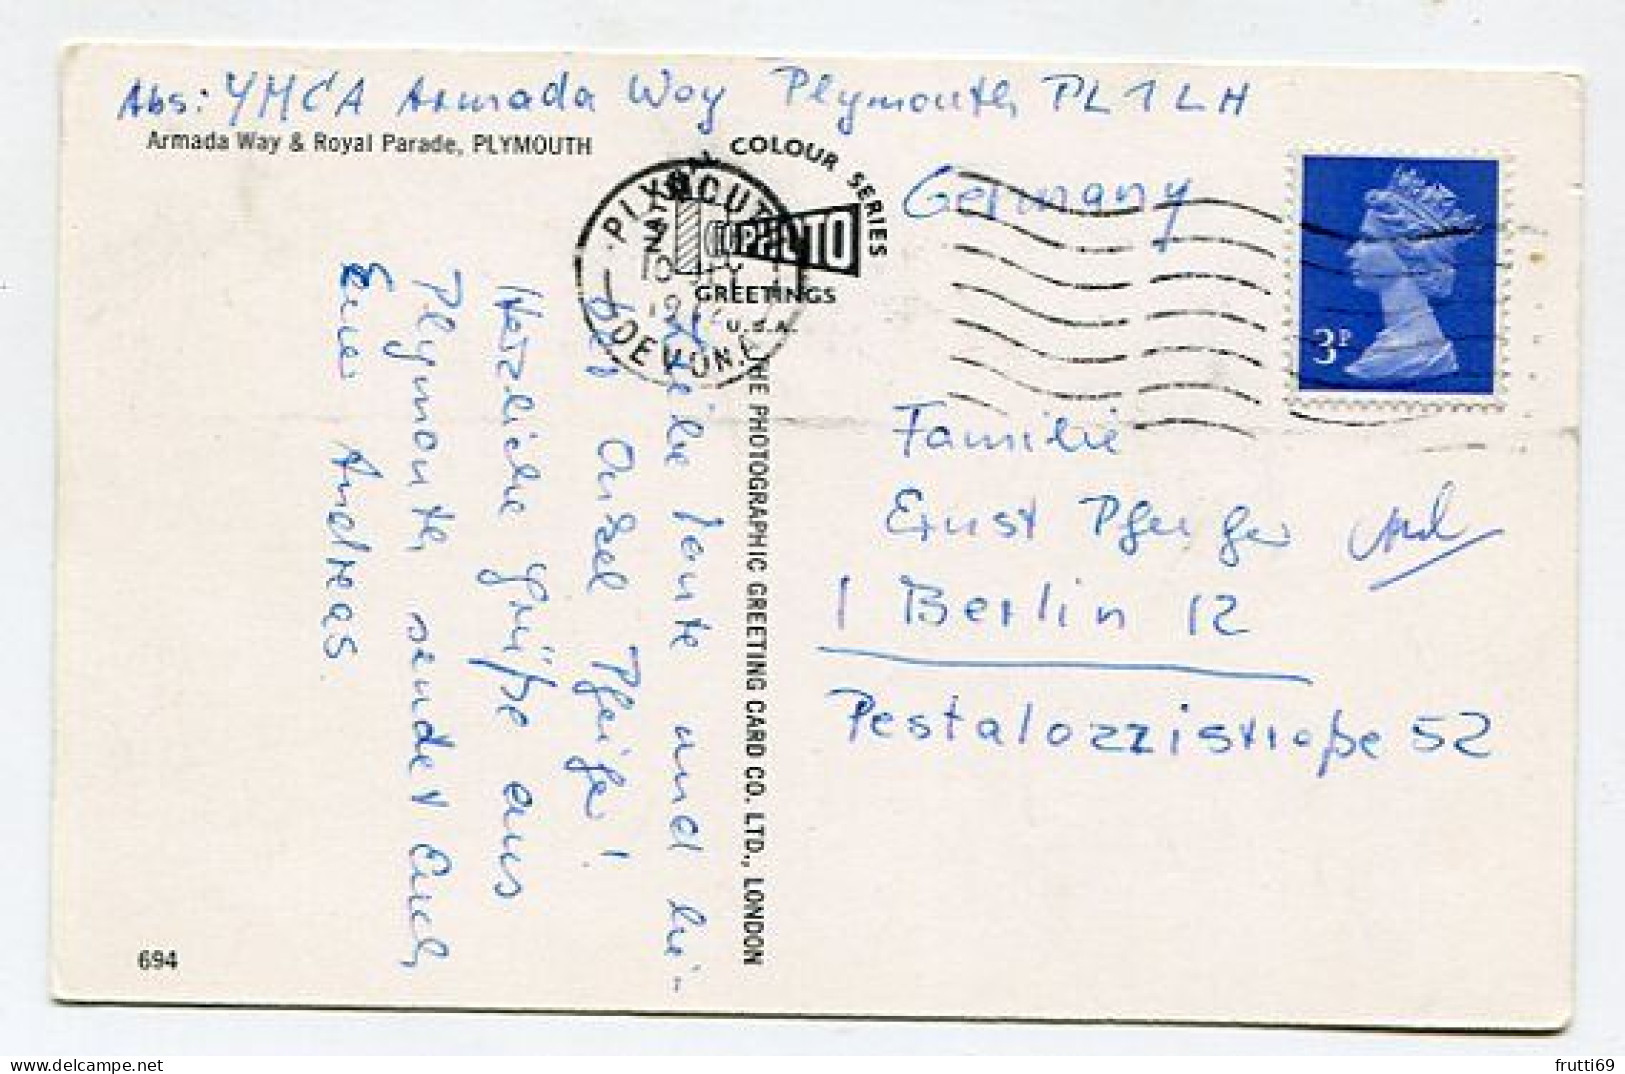 Abs: YMCA Armada Way Plymouth PL1 LH
Armada Way & Royal Parade, PLYMOUTH
COLOUR SERIES
PHOTO
GREETINGS
U.S.A.
PLYMOUTH
DEVON. A
Germany
3P
Familie
Ernst Pfeifer
1 Berlin 12
Pestalozzistraße 52
THE PHOTOGRAPHIC GREETING CARD CO. LTD., LONDON
Tante und lie-
ber Onkel Pfeifer!
Herzliche Grüße aus
Plymouth sendet Euch
Euer Andreas.
694
frutti69